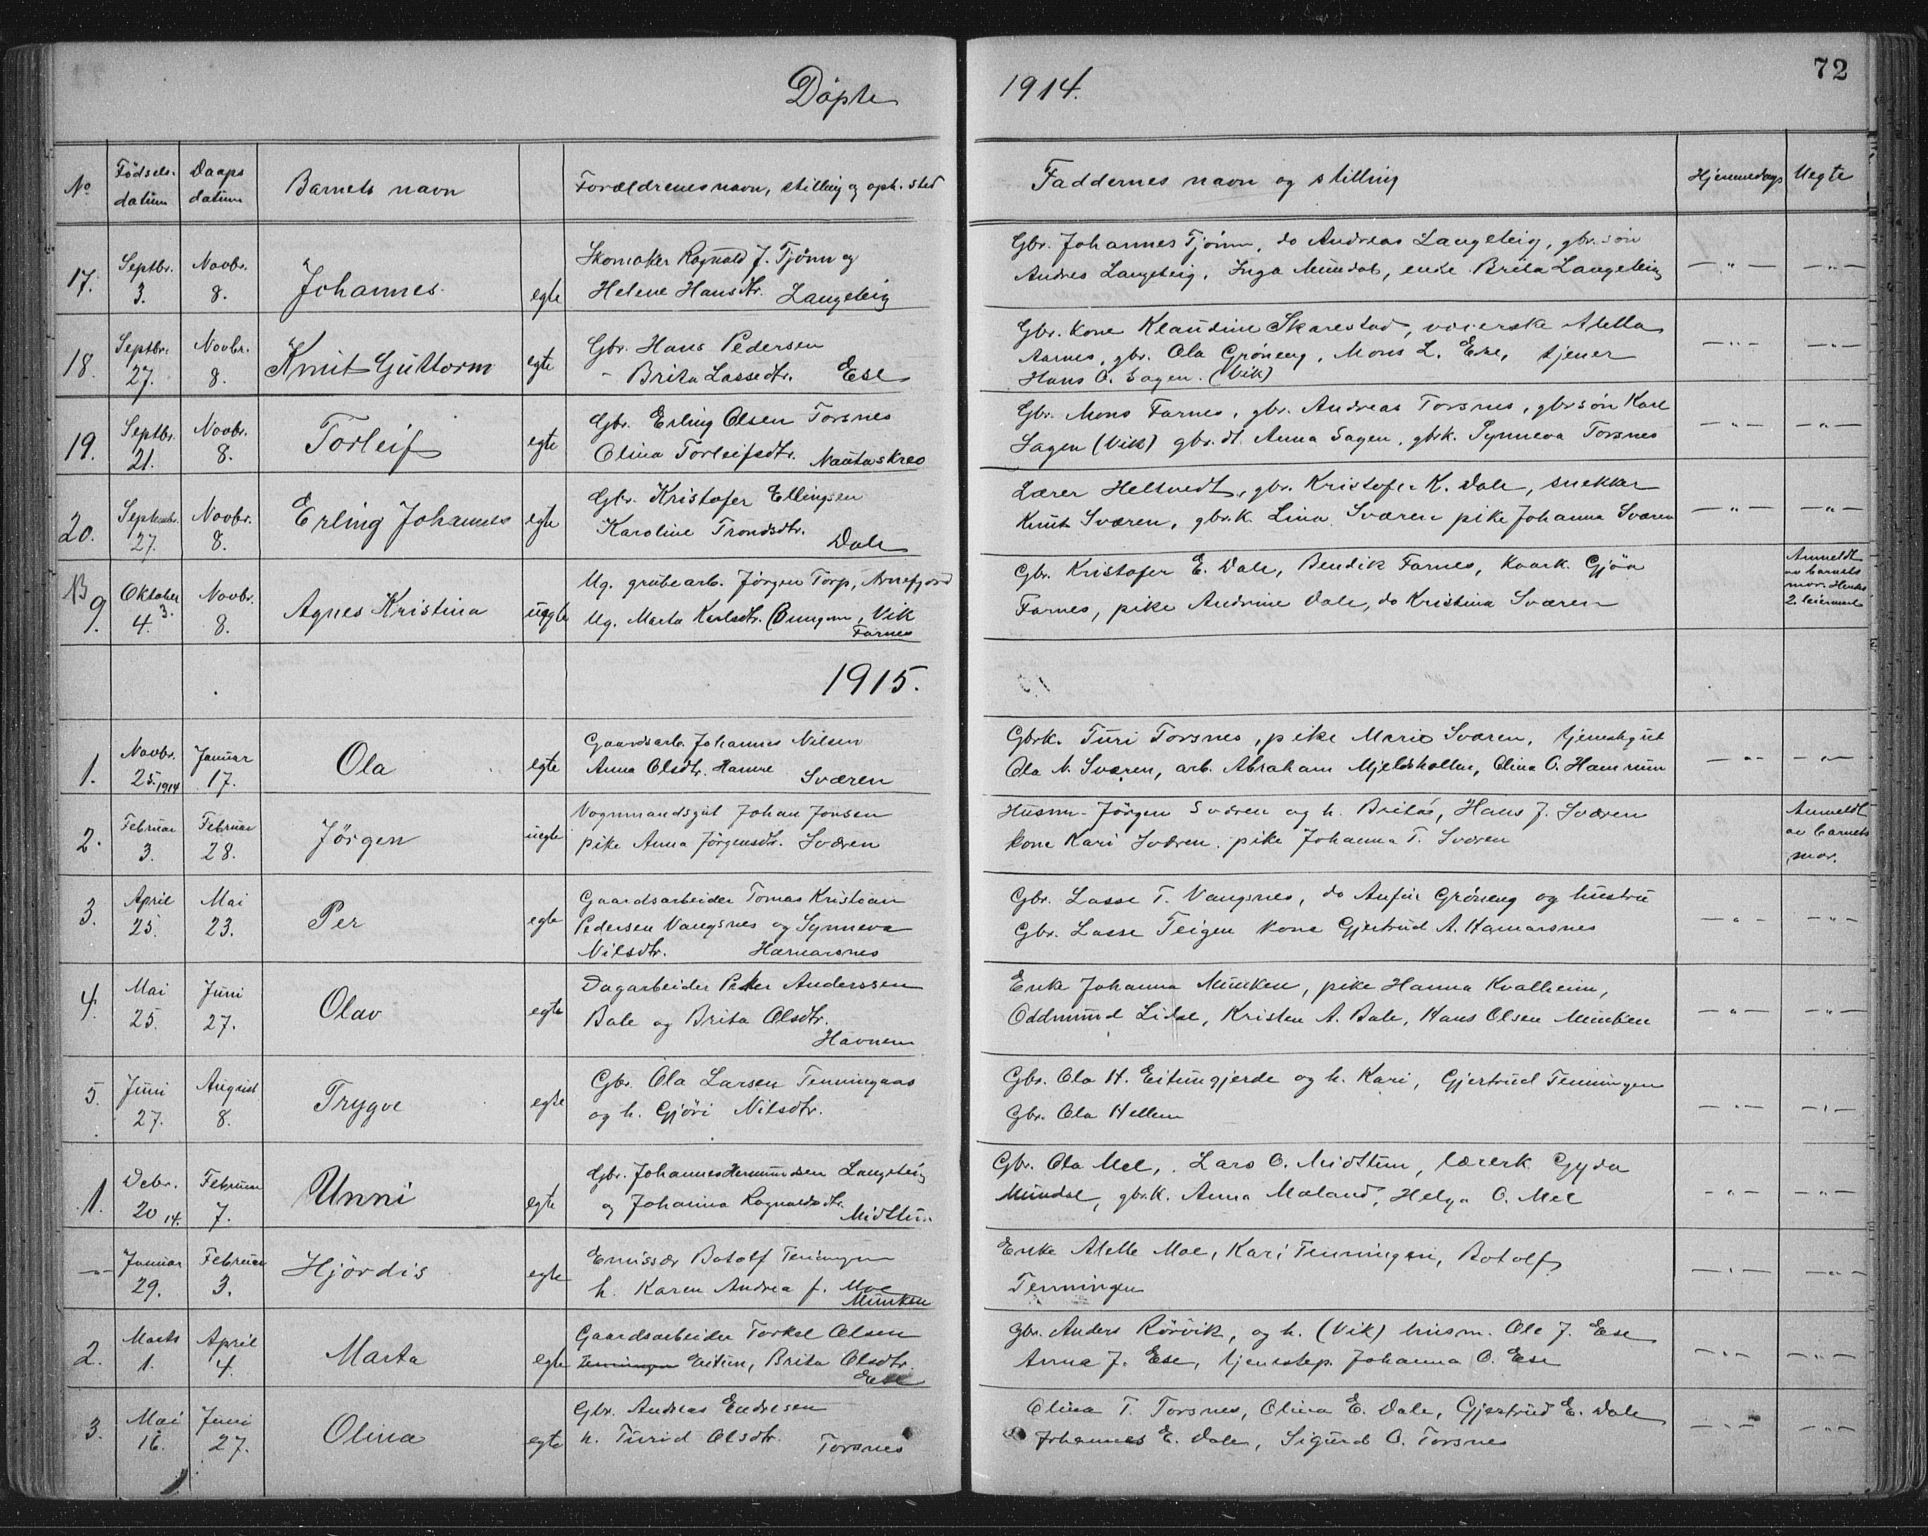 Döpte 1914.
72
No Fødsels-datum Daaps datum Barnets navn Forældrenes navn, stilling og oph. sted Faddernes navn og stilling Hjemmedaap Uegte
17. Septbr. 3. Novbr. 8. Johannes egte Skomaker Ragnald J. Tjönn og
Helene Hansdtr. Langeteig
Gbr. Johannes Tjönn, do Andreas Langeteig, gbr.sön
Andres Langeteig, Inga Mundal, enke Brita Langeteig
18. Septbr. 27. Novbr. 8. Knut Guttorm egte Gbr. Hans Pedersen
– Brita Lassedtr. Ese
Gbr. kone Klaudine Skarestad, Atella
Aarnes, gbr. Ola Gröneng, Mons L. Ese, tjener
Hans O. Sagen. (Vik)
19. Septbr. 21. Novbr. 8. Torleif egte Gbr. Erling Olsen Torsnes
Olina Torleifsdtr. Nautaskreo
Gbr. Mons Farnes, gbr. Andreas Torsnes, gbrsön Karl
Sagen (Vik) gbr. dt. Anna Sagen, gbrk. Synneva Torsnes
20. Septembr. 27. Novbr. 8. Erling Johannes egte Gbr. Kristofer Ellingsen
Karoline Trondsdtr. Dale
Lærer Heltvedt, gbr. Kristofer K. Dale, snekkar
Knut Sværen, gbr.k. Lina Sværen pike Johanna Sværen
9. Oktober 4. 3. Novbr. 8. Agnes Kristina uegte Ug. grubearb. Jörgen Torp, Arnefjord
Ug. Marta Karlsdtr. Vik
Farnes
Gbr. Kristofer E. Dale, Bendik Farnes, Gjöa
Farnes, pike Andrine Dale, do Kristina Sværen
Anmeldt
av barnets
mor. Hendes
2. leiermaal
1915.
1. Novbr. 25. 1914 Januar 17. Ola egte Gaardsarb. Johannes Nilsen
Anna Olsdtr. Hamre Sværen
Gbrk. Turi Torsnes, pike Marie Sværen, tjenestgut
Ola N. Sværen, arb. Abraham Mjeldshollen, Olina O. Hamrum
2. Februar 3. Februar 28. Jörgen uegte Vognmandsgut Johan Jonsen
pike Anna Jörgensdtr. Sværen
Husm. Jörgen Sværen og h. Brita, Hans J. Sværen
kone Kari Sværen. pike Johanna T. Sværen
Anmeldt
av barnets
mor.
3. April 25. Mai 23. Per egte Gaardsarbeider Tomas Kristian
Pedersen Vangsnes og Synneva
Nilsdtr. Hamarsnes
Gbr. Lasse T. Vangsnes, do Anfin Gröneng og hustru
Gbr. Lasse Teigen kone Gjertrud A. Hamarsnes
4. Mai 25. Juni 27. Olav egte Dagarbeider Peder Anderssen
Bale og Brita Olsdtr.
Havnen
Enke Johanna Munken, pike Hanna Kvalheim,
Oddmund Lidal, Kristen A. Bale, Hans Olsen Munken
5. Juni 27. August 8. Trygve egte Gbr. Ola Larsen Tenningaas
og h. Gjöri Nilsdtr.
Gbr. Ola H. Eitungjerde og h. Kari, Gjertrud Tenningen
Gbr. Ola Hellem
1. Debr. 20 14. Februar 7. Unni egte Gbr. Johannes Hermundsen Langeteig
og Johanna Ragnaldsdtr. Midttun
Gbr. Ola Mel, Lars O. Midttun, lærerk. Gyda
Mundal, gbr.k. Anna Mæland, Helga O. Mel
–"– Januar 29. Februar 3. Hjördis egte Emissær Botolf Tenningen
h. Karen Andrea f. Moe
Munken
Enke Atelle Moe, Kari Tenningen, Botolf
Tenningen
2. Marts 1. April 4. Marta egte Gaardsarbeider Torkel Olsen
Tenningen Eitun, Brita Olsdtr.
Ese
Gbr. Anders Rörvik, og h. (Vik) husm. Ole J. Ese
Anna J. Ese, tjenstep. Johanna O. Ese
3. Mai 16. Juni 27. Olina egte Gbr. Andreas Endresen
h. Turid Olsdtr. Torsnes
Olina T. Torsnes, Olina E. Dale, Gjertrud E. Dale
Johannes E. Dale, Sigurd O. Torsnes